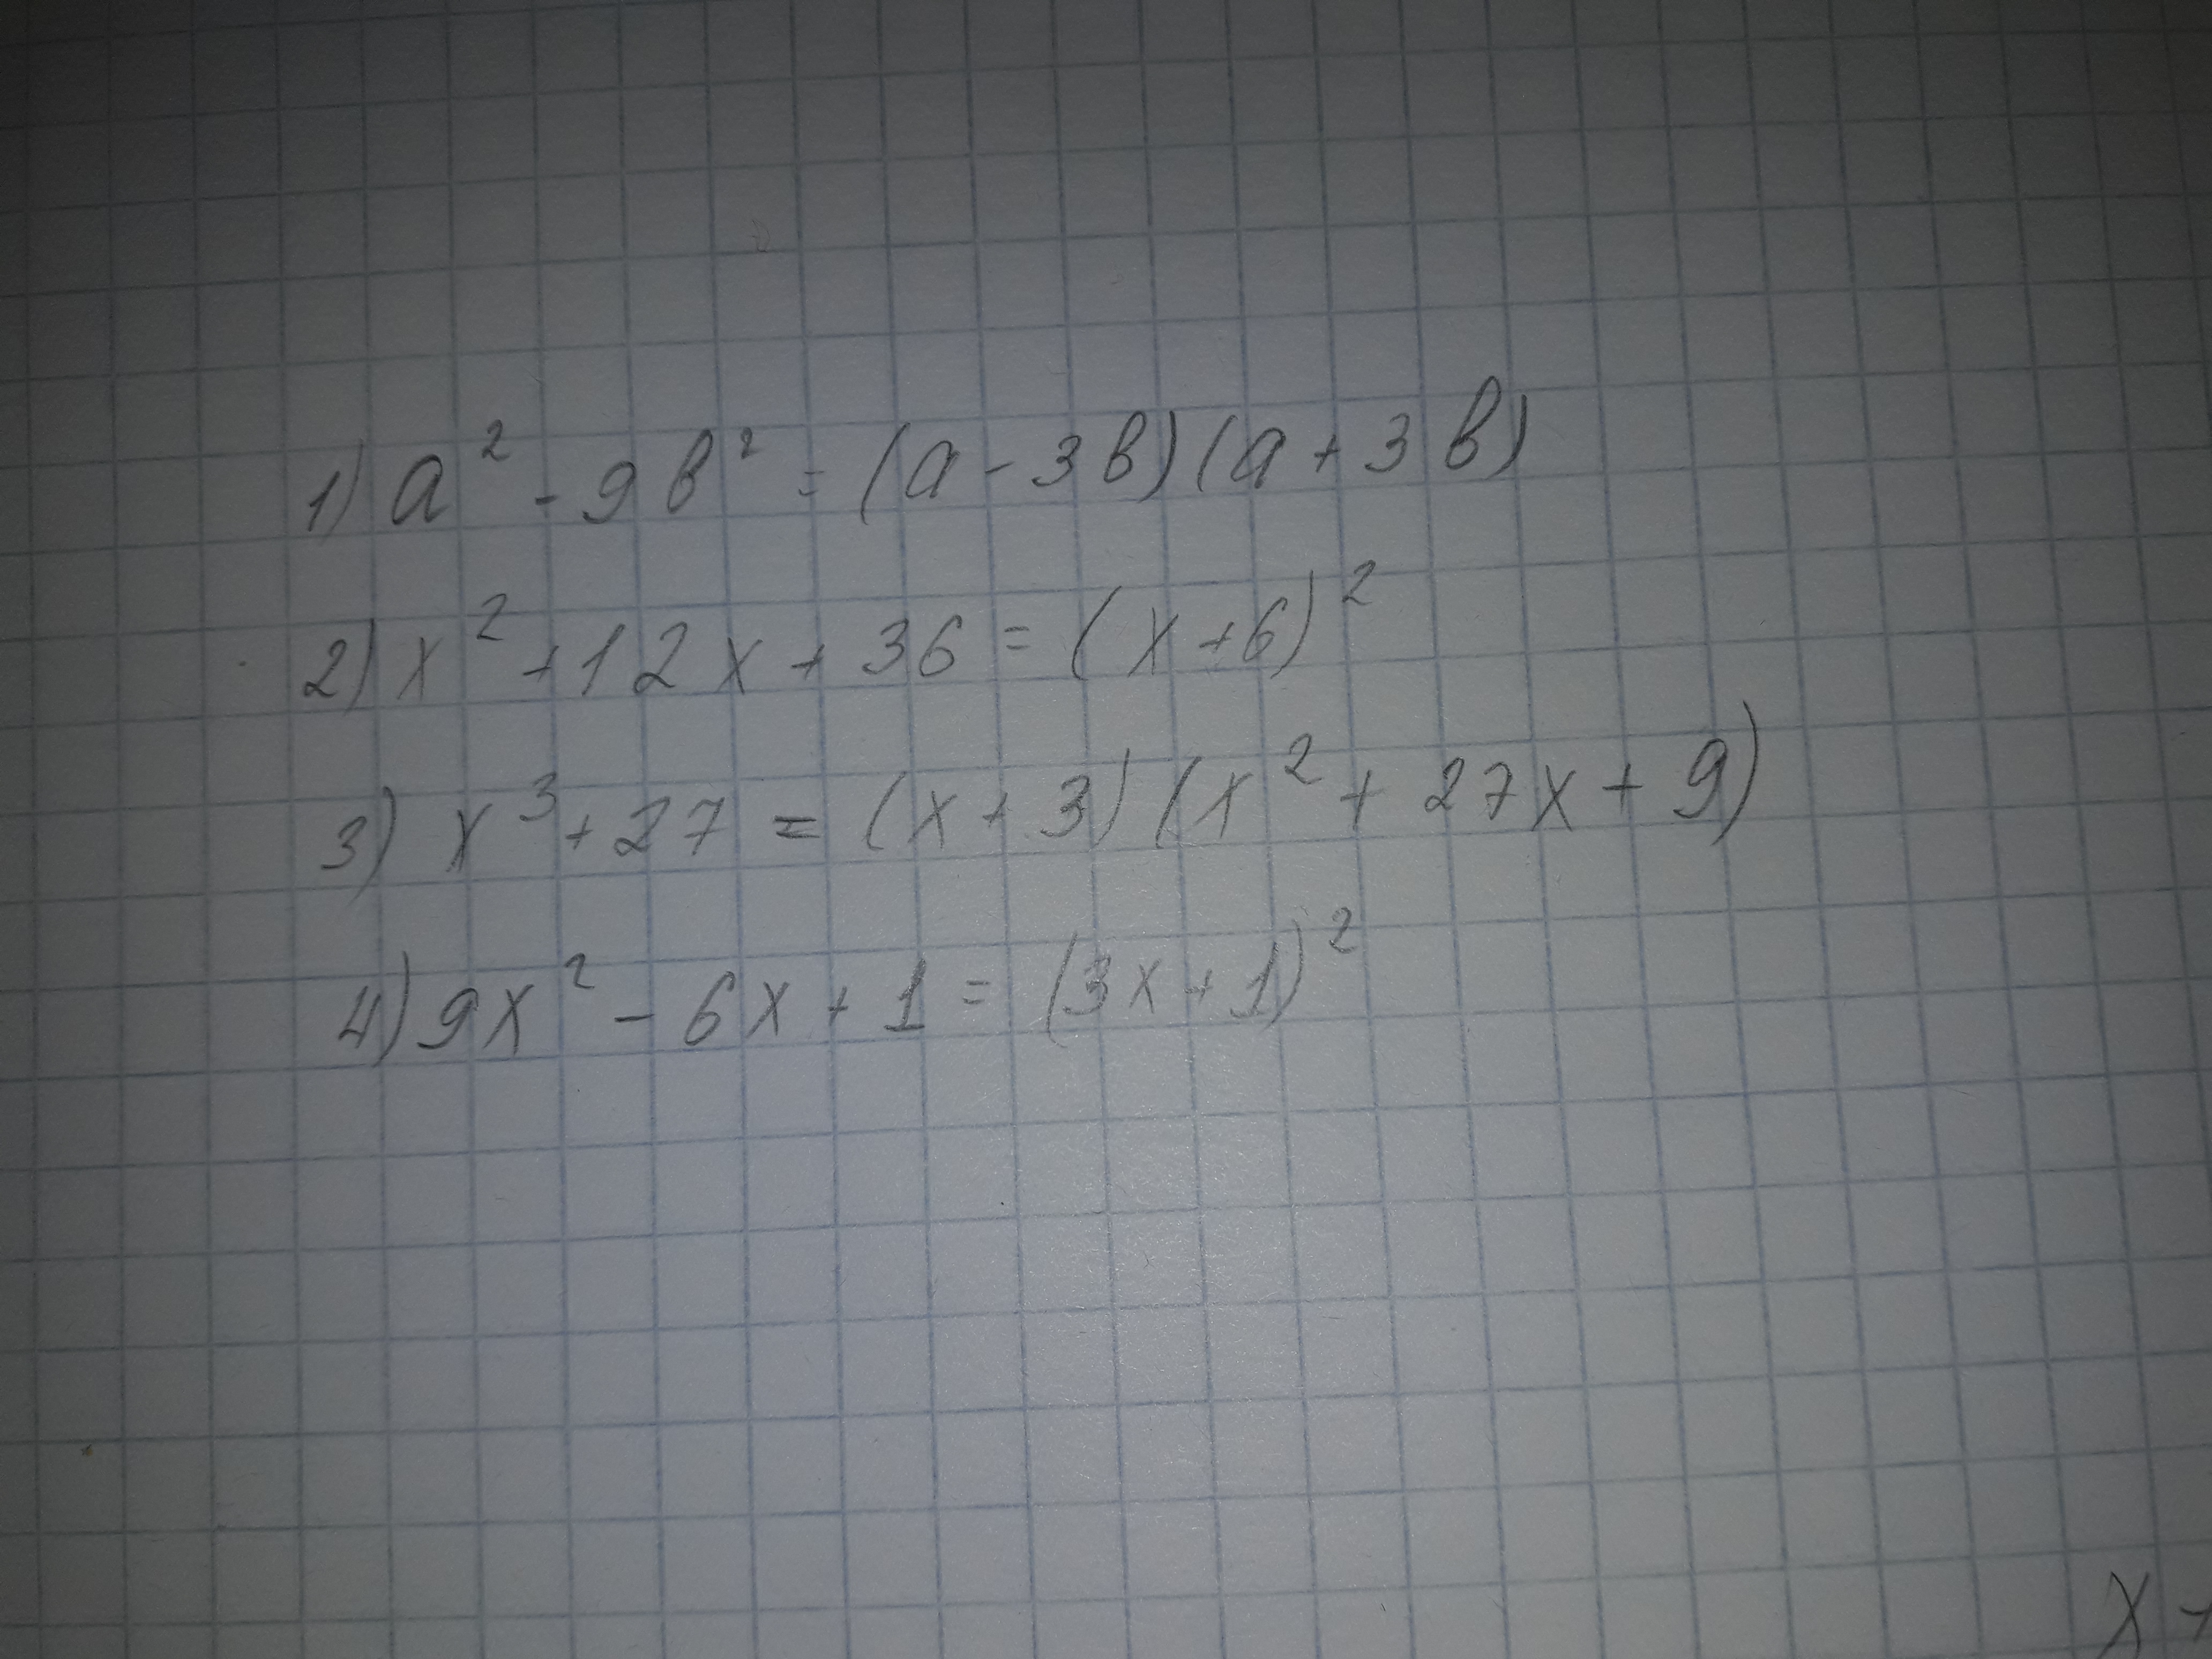 1) a² - 9b² = (a - 3b)(a + 3b)
2) x² + 12x + 36 = (x + 6)²
3) x³ + 27 = (x + 3)(x² + 27x + 9)
4) 9x² - 6x + 1 = (3x + 1)²
x